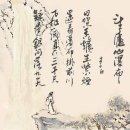 望廬山瀑布
日照香爐生紫煙
遙看瀑布掛前川
飛流直下三千尺
疑是銀河落九天